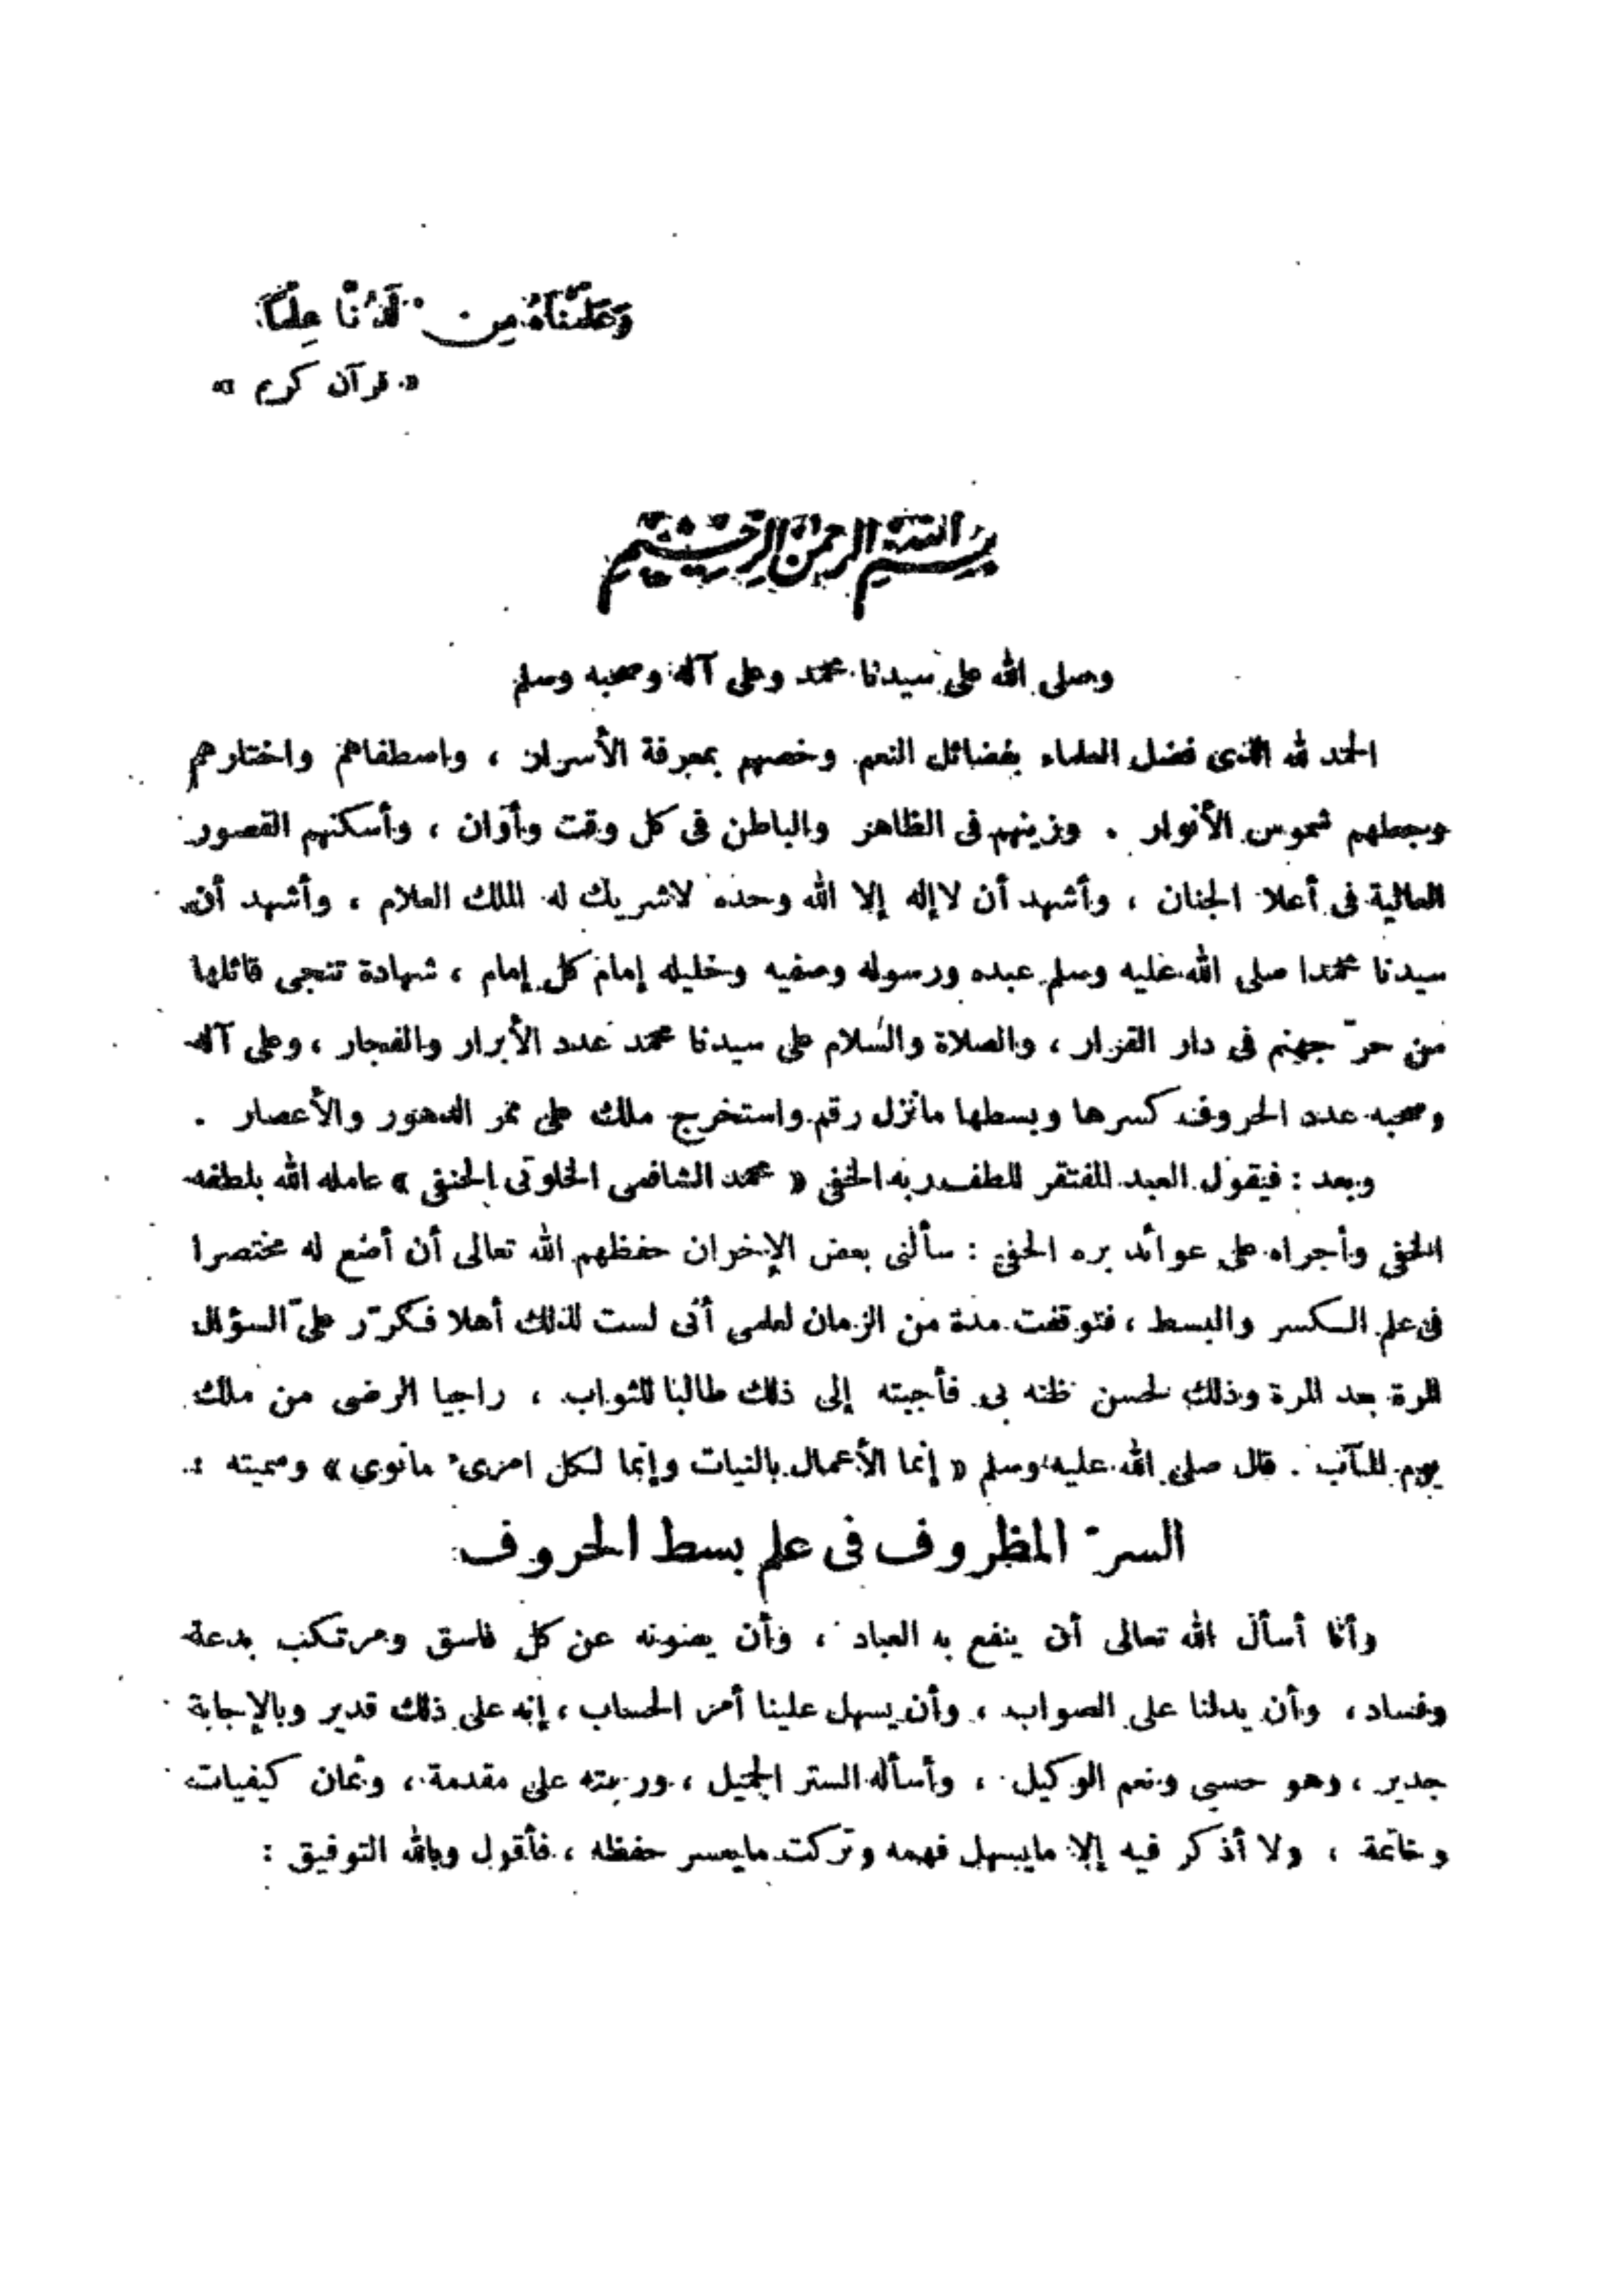 وَعَلَّمْنَاهُ مِن لَّدُنَّا عِلْمًا
« قرآن كريم »
بسم الله الرحمن الرحيم
وصلى الله على سيدنا محمد وعلى آله وصحبه وسلم
الحمد لله الذى فضل العلماء بفضائل النعم وخصهم بمعرفة الأسرار ، واصطفاهم واختارهم
وجعلهم شموس الأنوار . وزينهم فى الظاهر والباطن فى كل وقت وأوان ، وأسكنهم القصور
العالية فى أعلا الجنان ، وأشهد أن لاإله إلا الله وحده لاشريك له الملك العلام ، وأشهد أن
سيدنا محمدا صلى الله عليه وسلم عبده ورسوله وصفيه وخليله إمام كل إمام ، شهادة تنجى قائلها
من حرّ جهنم فى دار القرار ، والصلاة والسلام على سيدنا محمد عدد الأبرار والفجار ، وعلى آله
وصحبه عدد الحروف كسرها وبسطها مانزل رقم واستخرج ملك على ممر الدهور والأعصار .
وبعد : فيقول العبد المفتقر للطف ربه الخفى « محمد الشافعى الخلوتى الحنفى » عامله الله بلطفه
الخفى وأجراه على عوائد بره الحفى : سألنى بعض الإخوان حفظهم الله تعالى أن أضع له مختصرا
فى علم الكسر والبسط ، فتوقفت مدة من الزمان لعلمى أنى لست لذلك أهلا فكرّر علىّ السؤال
المرة بعد المرة وذلك لحسن ظنه بى فأجبته إلى ذلك طالبا للثواب ، راجيا الرضى من ملك
يوم المآب . قال صلى الله عليه وسلم « إنما الأعمال بالنيات وإنما لكل امرئ مانوى » وسميته :
السرّ المظروف فى علم بسط الحروف
وأنا أسأل الله تعالى أن ينفع به العباد ، وأن يصونه عن كل فاسق ومرتكب بدعة
وفساد ، وأن يدلنا على الصواب ، وأن يسهل علينا أمر الحساب ، إنه على ذلك قدير وبالإجابة
جدير ، وهو حسبى ونعم الوكيل ، وأسأله الستر الجميل ، ورتبته على مقدمة ، وثمان كيفيات
وخاتمة ، ولا أذكر فيه إلا مايسهل فهمه وتركت مايعسر حفظه ، فأقول وبالله التوفيق :